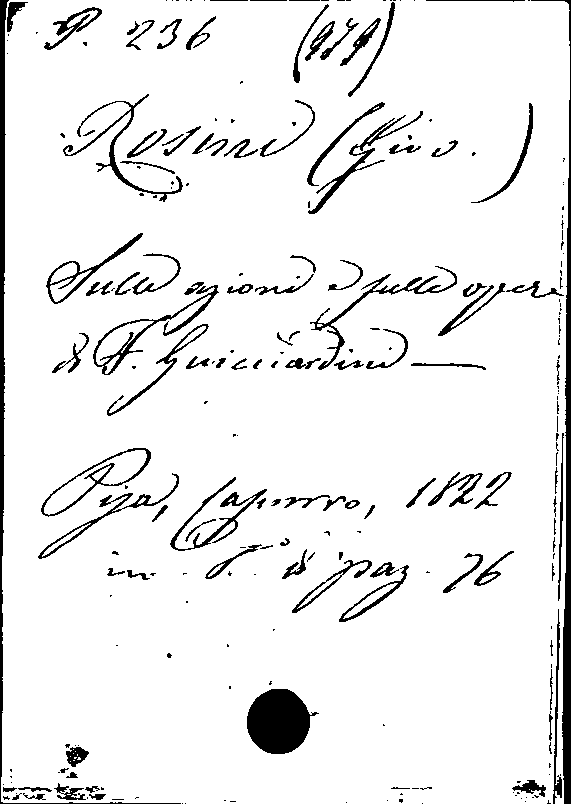 P. 236 (979)
Rosini (Gio.)
Sulle azioni e sulle opere
di F. Guicciardini —
Pisa, Capurro, 1822
in 8.° di pag. 76